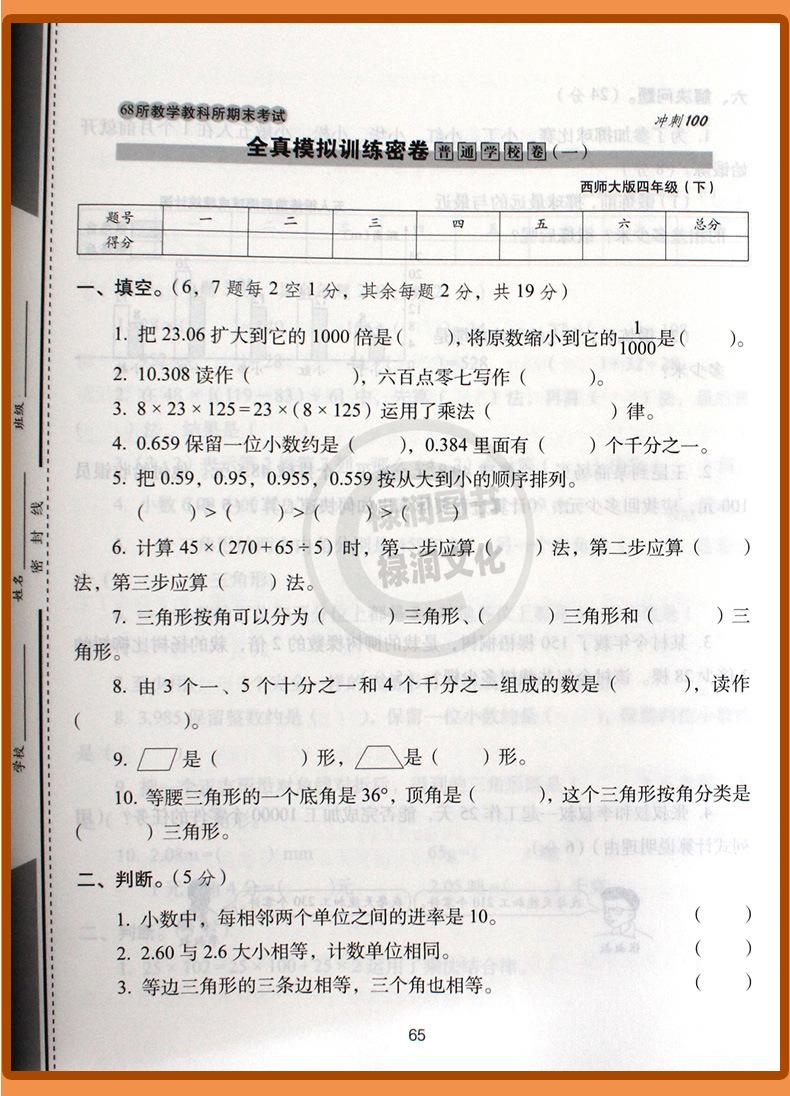 68所教学教科所期末考试
冲刺100
全真模拟训练密卷 普通学校卷(一)
西师大版四年级(下)
题号 一 二 三 四 五 六 总分
得分
一、填空。(6,7题每2空1分,其余每题2分,共19分)
1. 把23.06扩大到它的1000倍是( ),将原数缩小到它的1/1000是( )。
2. 10.308读作( ),六百点零七写作( )。
3. 8×23×125=23×(8×125)运用了乘法( )律。
4. 0.659保留一位小数约是( ),0.384里面有( )个千分之一。
5. 把0.59、0.95、0.955、0.559按从大到小的顺序排列。
( )>( )>( )>( )
6. 计算45×(270+65÷5)时,第一步应算( )法,第二步应算( )
法,第三步应算( )法。
7. 三角形按角可以分为( )三角形、( )三角形和( )三
角形。
8. 由3个一、5个十分之一和4个千分之一组成的数是( ),读作
( )。
9. 是( )形, 是( )形。
10. 等腰三角形的一个底角是36°,顶角是( ),这个三角形按角分类是
( )三角形。
二、判断。(5分)
1. 小数中,每相邻两个单位之间的进率是10。 ( )
2. 2.60与2.6大小相等,计数单位相同。 ( )
3. 等边三角形的三条边相等,三个角也相等。 ( )
65
学校
姓名
班级
密封线
禄润图书
禄润文化